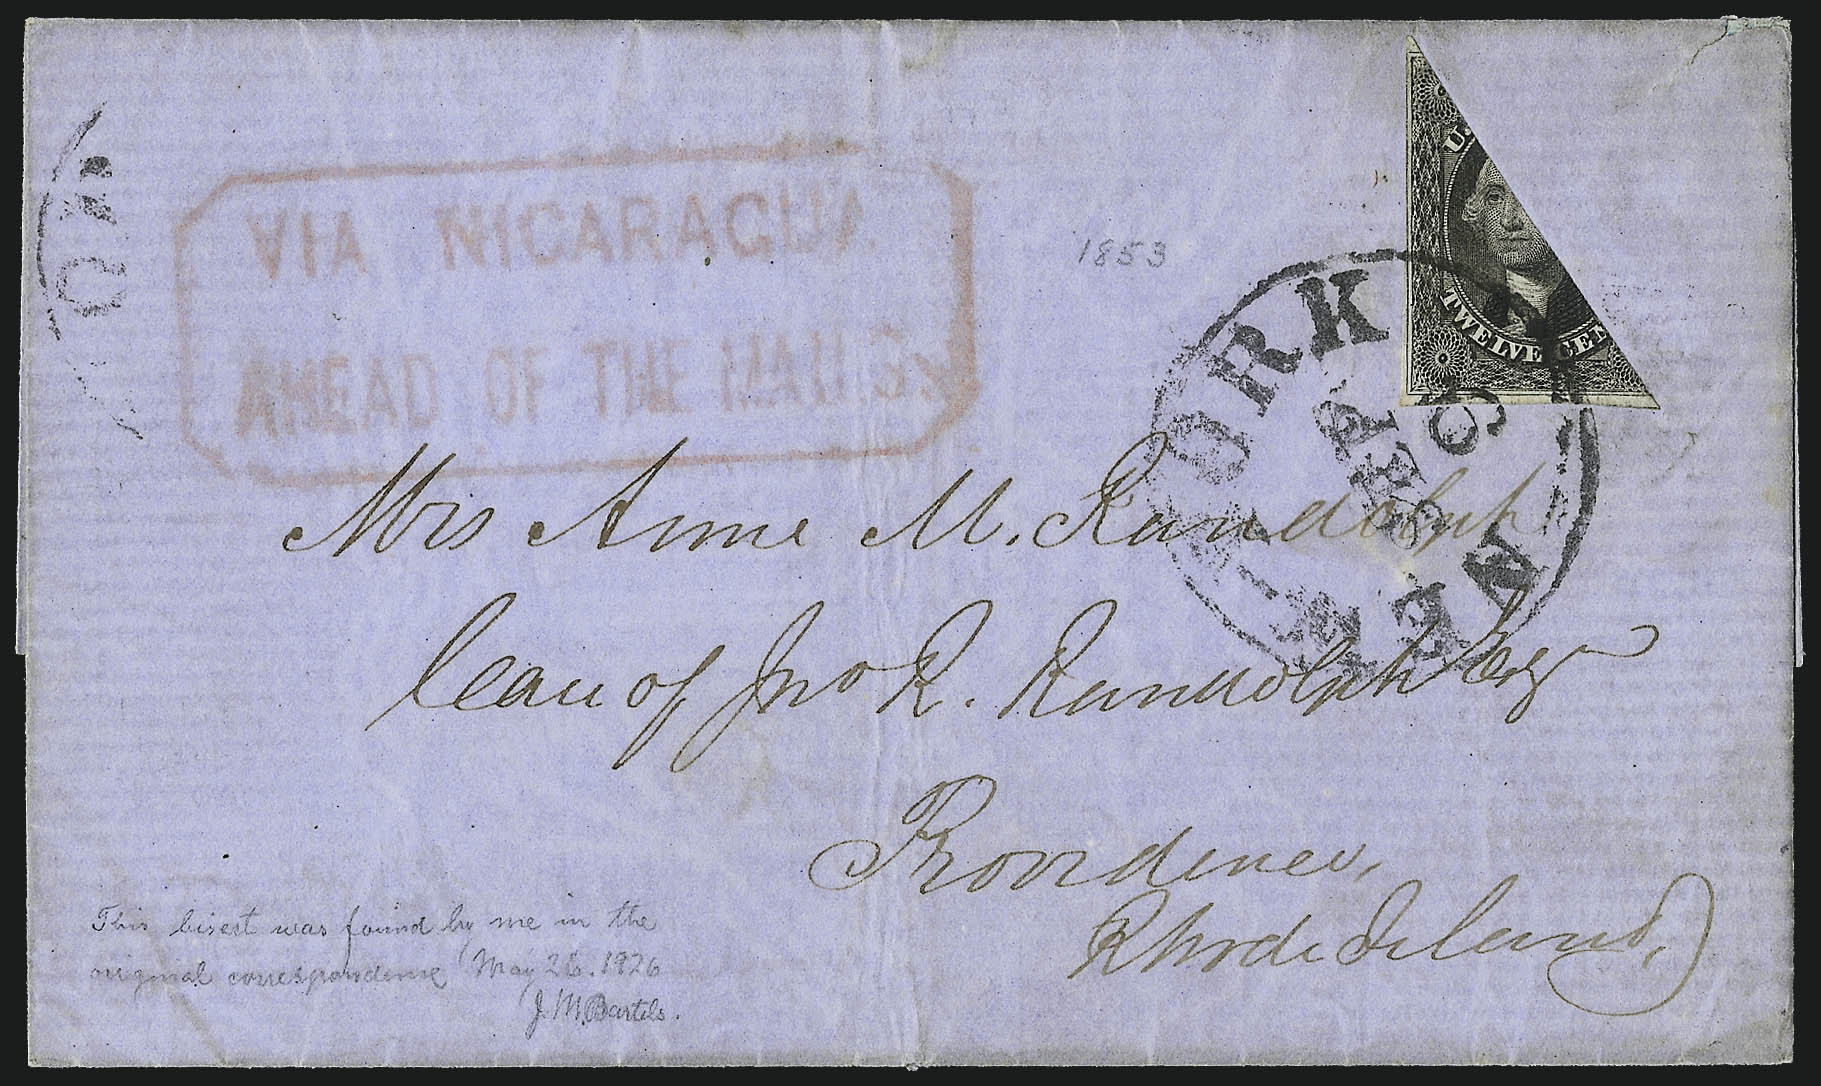 VIA NICARAGUA
AHEAD OF THE MAILS
1853
U.
TWELVE CEN
NEW YORK
SHIP
Mrs Anne M. Randolph
Care of Jno R. Randolph Esq
Providence,
Rhode Island,
This bisect was found by me in the
original correspondence May 26. 1926
J. M. Bartels.